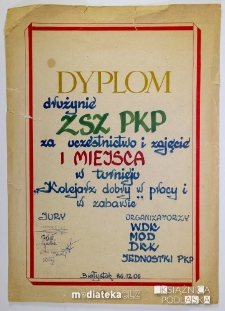 DYPLOM
drużynie
ZSZ PKP
za uczestnictwo i zajęcie
I MIEJSCA
w turnieju
„Kolejarz dobry w pracy i
w zabawie
JURY
ORGANIZATORZY
WDK
MOD
DRK
JEDNOSTKI PKP
Białystok
mediateka
KSIĄŻNICA
PODLASKA